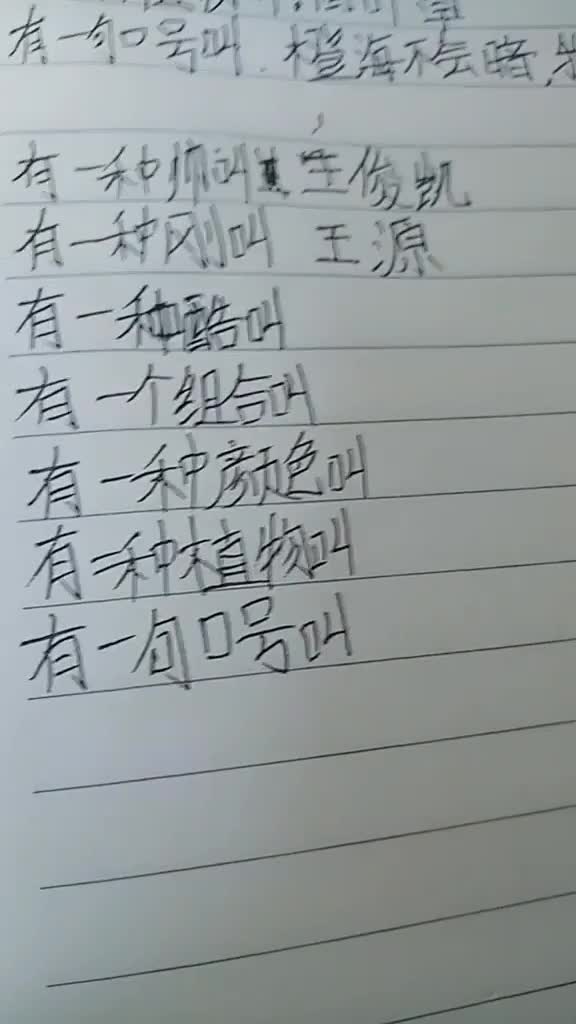 有一句口号叫.橙海不会暗,
有一种帅叫王俊凯
有一种刚叫 王源
有一种酷叫
有一个组合叫
有一种颜色叫
有一种植物叫
有一句口号叫